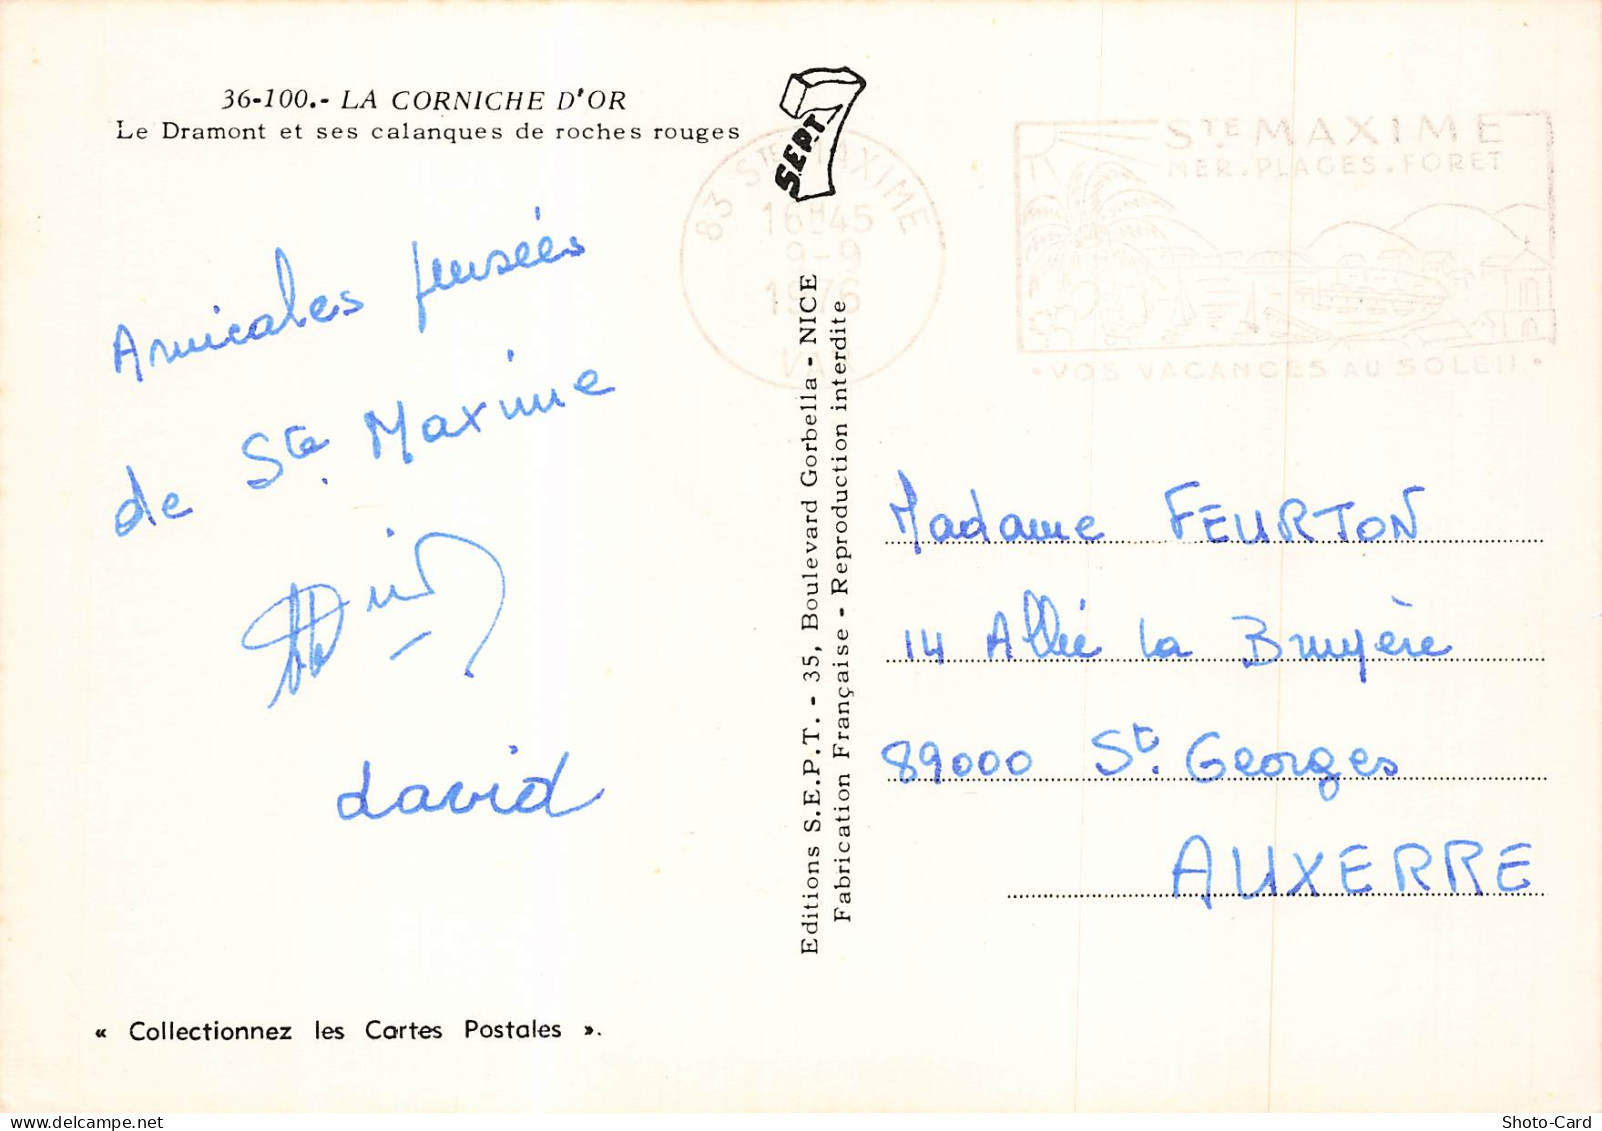 36-100.- LA CORNICHE D'OR
Le Dramont et ses calanques de roches rouges
SEPT 7
83 STE MAXIME
16H45
9-9
1976
VAR
STE MAXIME
MER. PLAGES. FORET
• VOS VACANCES AU SOLEIL •
Amicales pensées
de Ste Maxime
david
Editions S.E.P.T. - 35, Boulevard Gorbella - NICE
Fabrication Française - Reproduction interdite
Madame FEURTON
14 Allée la Bruyère
89000 St. Georges
AUXERRE
« Collectionnez les Cartes Postales ».
Shoto-Card